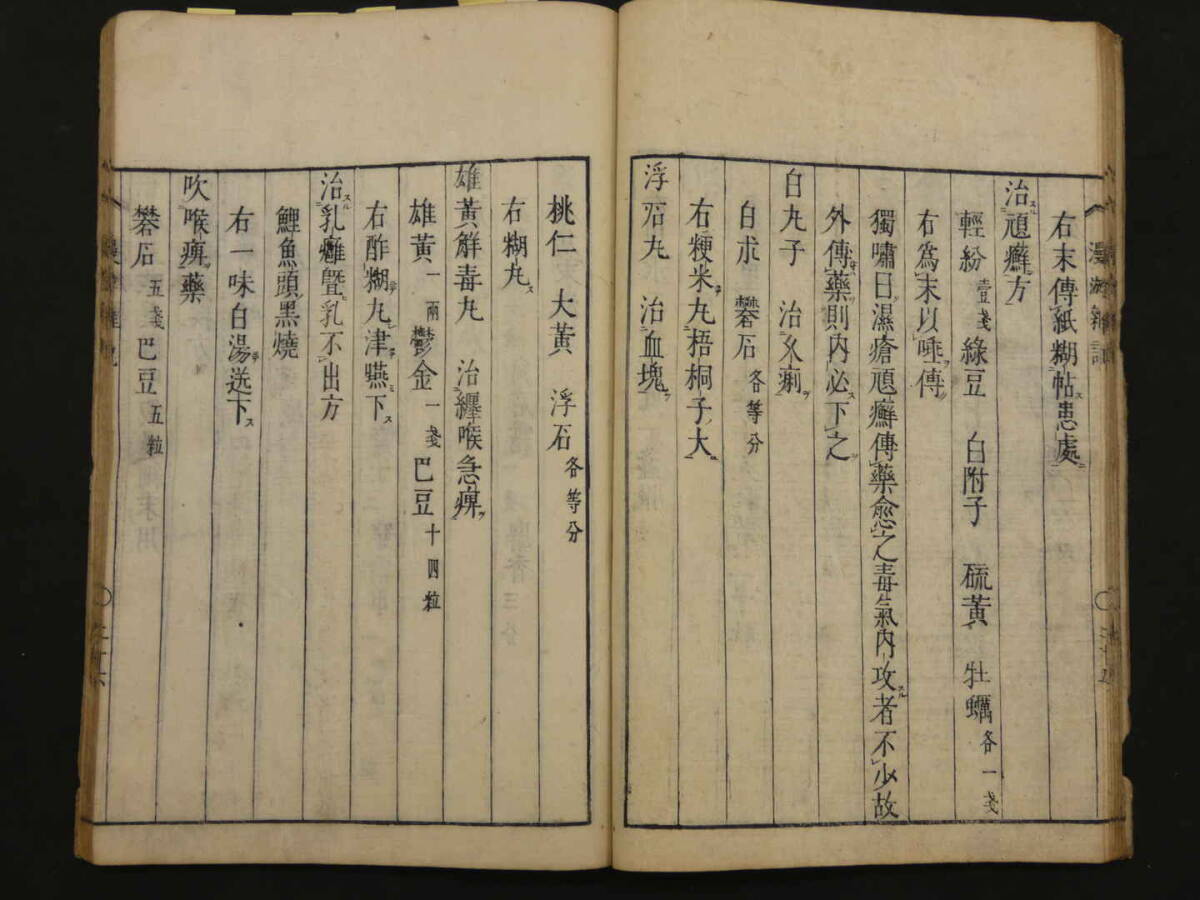 漫游雜記
右末傳紙糊帖患處
治頑癬方
輕紛 壹戔 綠豆 白附子 硫黃 牡蠣 各一戔
右為末以唾傳
獨嘯曰濕瘡頑癬傳藥愈之毒氣內攻者不少故
外傳藥則內必下之
白丸子 治久痢
白朮 礬石 各等分
右粳米丸梧桐子大
浮石丸 治血塊
桃仁 大黃 浮石 各等分
右糊丸
雄黃解毒丸 治纏喉急痺
雄黃 一兩 鬱金 一戔 巴豆 十四粒
右酢糊丸津嚥下
治乳癰暨乳不出方
鯉魚頭黑燒
右一味白湯送下
吹喉痺藥
礬石 五戔 巴豆 五粒